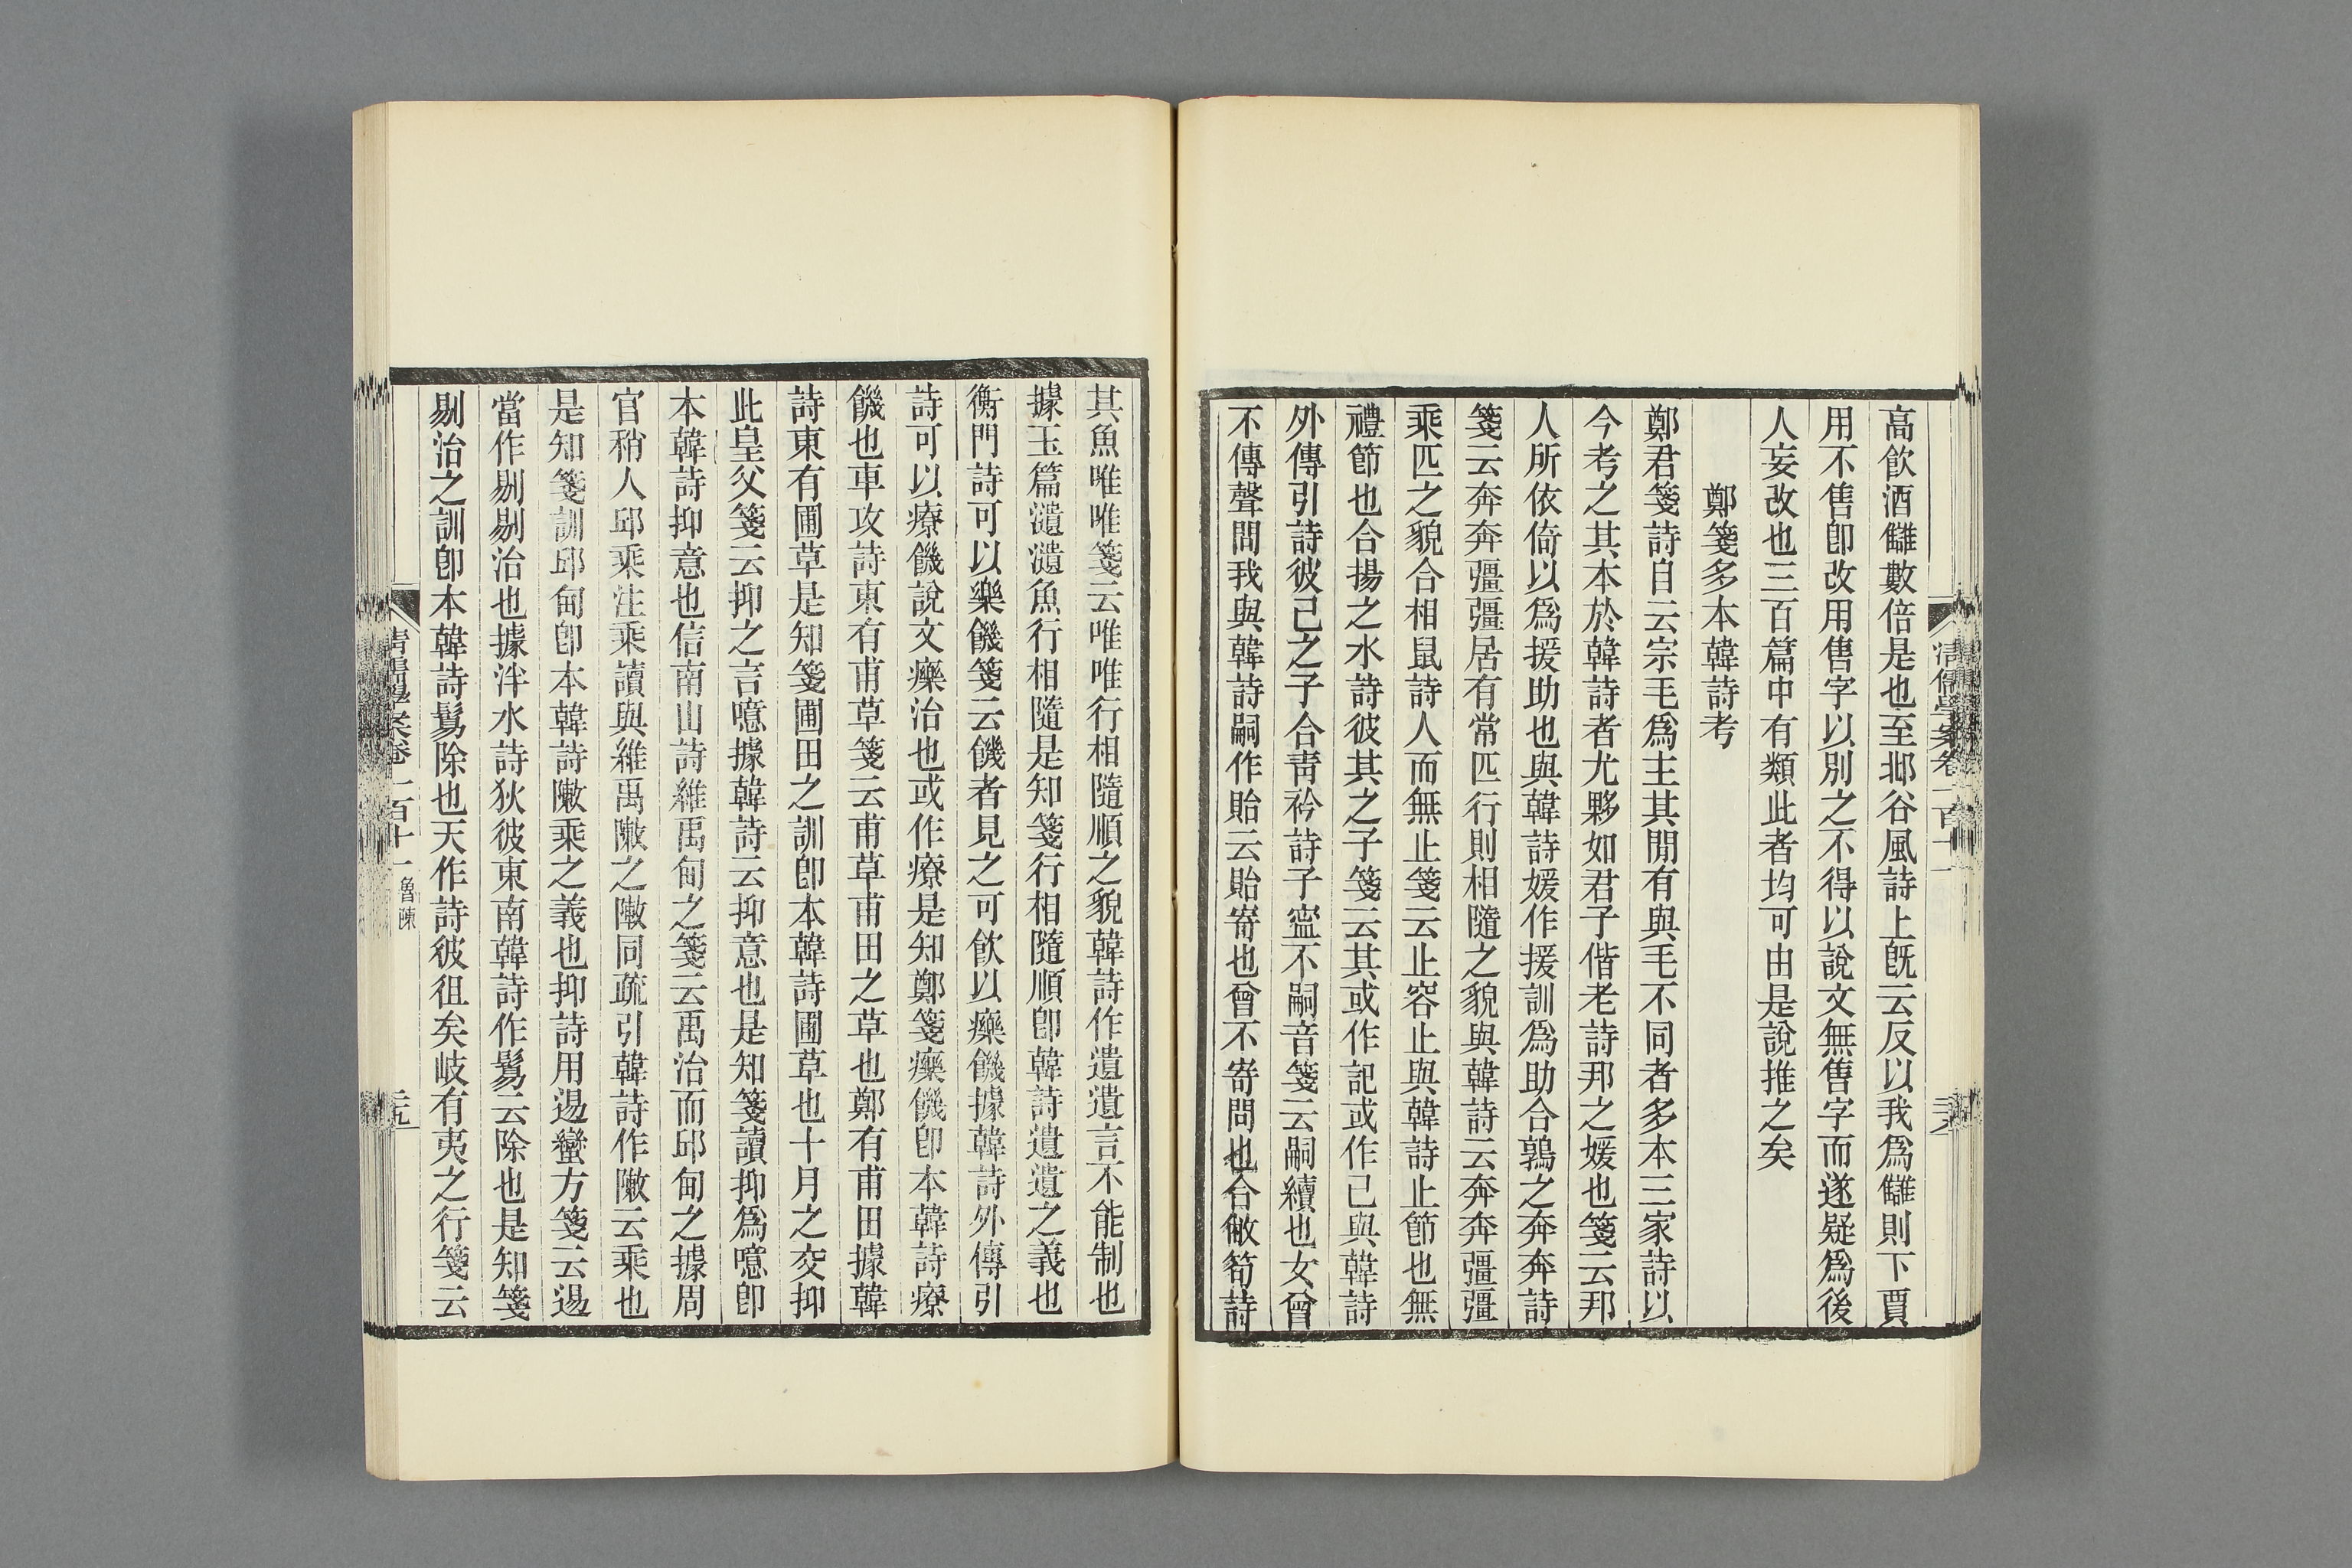 高飲酒讎數倍是也至邶谷風詩上旣云反以我爲讎則下賈
用不售卽改用售字以別之不得以說文無售字而遂疑爲後
人妄改也三百篇中有類此者均可由是說推之矣
鄭箋多本韓詩考
鄭君箋詩自云宗毛爲主其閒有與毛不同者多本三家詩以
今考之其本於韓詩者尤夥如君子偕老詩邦之媛也箋云邦
人所依倚以爲援助也與韓詩媛作援訓爲助合鶉之奔奔詩
箋云奔奔彊彊居有常匹行則相隨之貌與韓詩云奔奔彊彊
乘匹之貌合相鼠詩人而無止箋云止容止與韓詩止節也無
禮節也合揚之水詩彼其之子箋云其或作記或作己與韓詩
外傳引詩彼己之子合靑衿詩子寍不嗣音箋云嗣續也女曾
不傳聲問我與韓詩嗣作貽云貽寄也曾不寄問也合敝笱詩
清儒學案卷一百十一
其魚唯唯箋云唯唯行相隨順之貌韓詩作遺遺言不能制也
據玉篇瀢瀢魚行相隨是知箋行相隨順卽韓詩遺遺之義也
衡門詩可以樂飢箋云飢者見之可飲以𤻲飢據韓詩外傳引
詩可以療飢說文𤻲治也或作療是知鄭箋𤻲飢卽本韓詩療
飢也車攻詩東有甫草箋云甫草甫田之草也鄭有甫田據韓
詩東有圃草是知箋圃田之訓卽本韓詩圃草也十月之交抑
此皇父箋云抑之言噫據韓詩云抑意也是知箋讀抑爲噫卽
本韓詩抑意也信南山詩維禹甸之箋云禹治而邱甸之據周
官稍人邱乘注乘讀與維禹敶之敶同疏引韓詩作敶云乘也
是知箋訓邱甸卽本韓詩敶乘之義也抑詩用逷蠻方箋云逷
當作剔剔治也據泮水詩狄彼東南韓詩作鬄云除也是知箋
剔治之訓卽本韓詩鬄除也天作詩彼徂矣岐有夷之行箋云
清儒學案卷一百十一 魯陳
三九